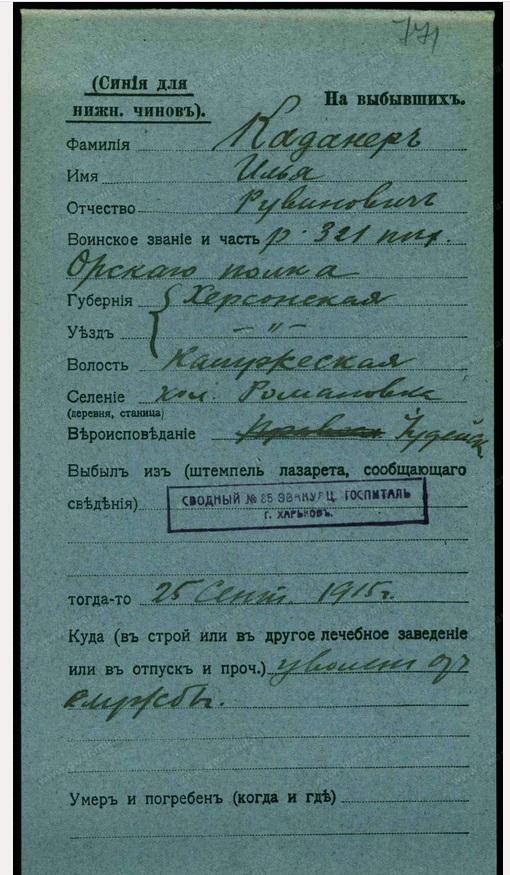 771
(Синія для
нижн. чиновъ).
На выбывшихъ.
Фамилія Каданеръ
Имя Илья
Отчество Рувиновичъ
Воинское званіе и часть р. 321 пѣх.
Орскаго полка
Губернія Херсонская
Уѣздъ — " —
Волость
Селеніе Романовка
(деревня, станица)
Вѣроисповѣданіе Іудейск
Выбылъ изъ (штемпель лазарета, сообщающаго
свѣдѣнія)
СВОДНЫЙ № 85 ЭВАКУАЦ. ГОСПИТАЛЬ
Г. ХАРЬКОВЪ.
тогда-то 25 Сент. 1915г.
Куда (въ строй или въ другое лечебное заведеніе
или въ отпускъ и проч.) уволенъ отъ
службы.
Умеръ и погребенъ (когда и гдѣ)